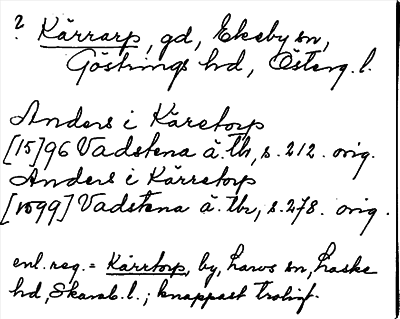 ? Kärrarp, gd, Ekeby sn,
Göstrings hd, Österg. l.
Anders i Käretorp
[15]96 Vadstena ä. tb, s. 212. orig.
Anders i Kärretorp
[1599] Vadstena ä. tb, s. 278. orig.
enl. reg. = Kärrtorp, by, Larvs sn, Laske
hd, Skarab. l.; knappast troligt.